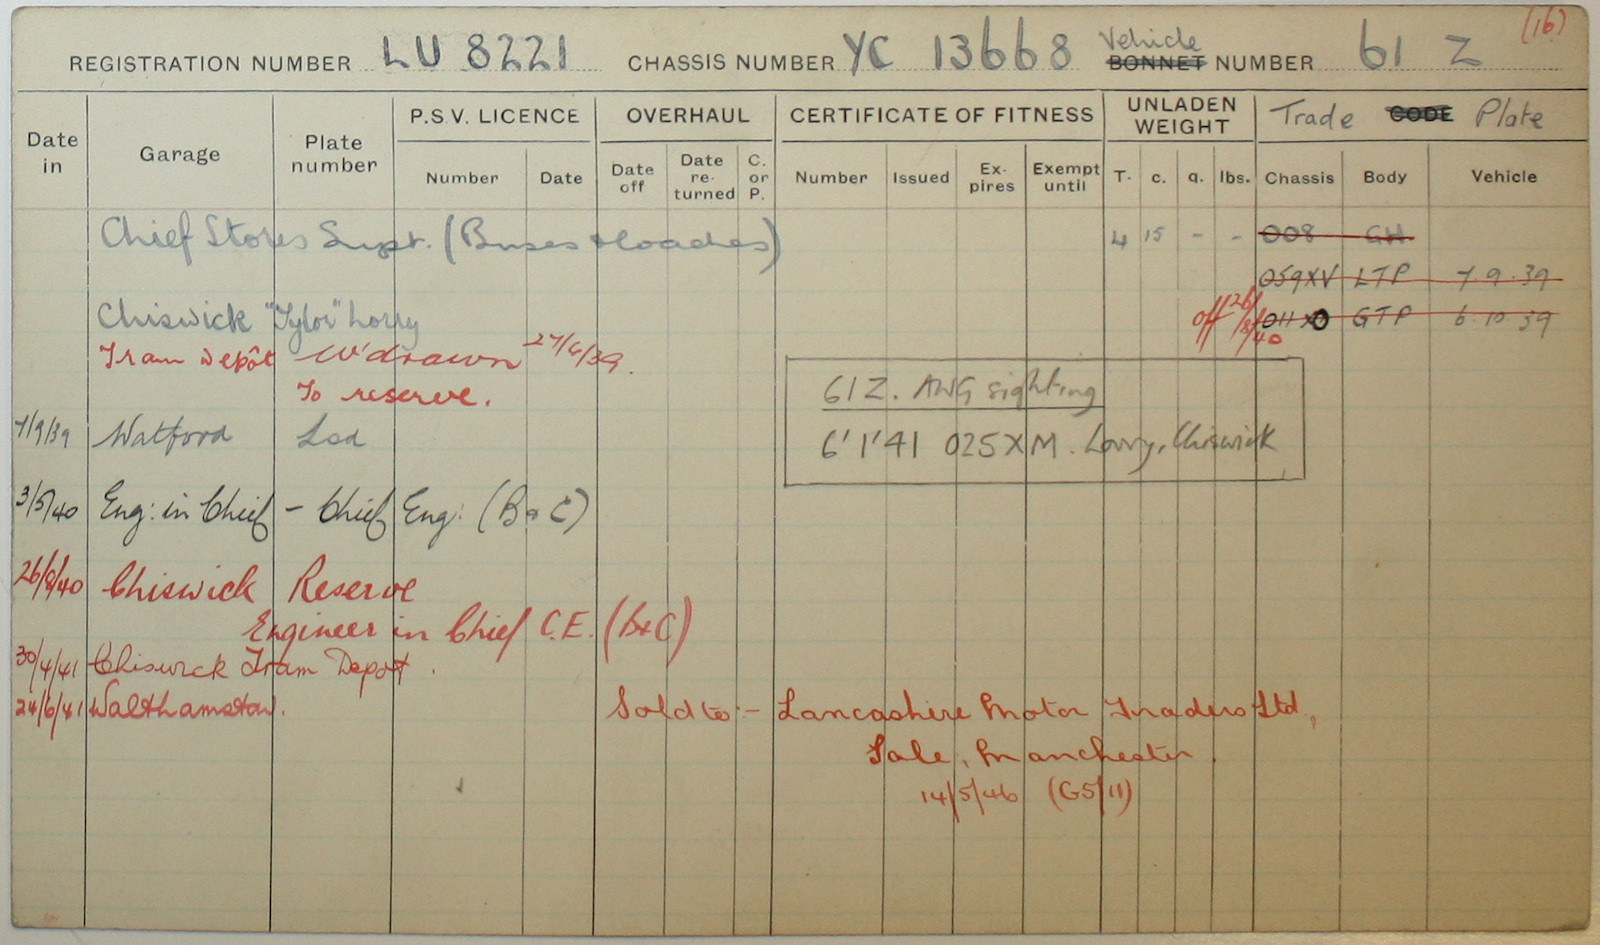 (16)
REGISTRATION NUMBER LU 8221 CHASSIS NUMBER YC 13668 Vehicle BONNET NUMBER 61 Z
Date in Garage Plate number P.S.V. LICENCE OVERHAUL CERTIFICATE OF FITNESS UNLADEN WEIGHT Trade CODE Plate
Number Date Date off Date re-turned C. or P. Number Issued Ex-pires Exempt until T. c. q. lbs. Chassis Body Vehicle
Chief Stores Supt. (Buses & Coaches) 4 15 - - 008 GH
059XV LTP 7.9.39
Chiswick "Tylor" Lorry off 26/8/40 011 XO GTP 6.10.39
Tram Depôt W'drawn 27/6/39.
To reserve.
61Z. AWG sighting
6'1'41 025XM. Lorry, Chiswick
7/9/39 Watford Lsd
3/5/40 Eng: in Chief - Chief Eng: (B & C)
26/8/40 Chiswick Reserve
Engineer in Chief C.E. (B&C)
30/4/41 Chiswick Tram Depot.
24/6/41 Walthamstow. Sold to:- Lancashire Motor Traders Ltd,
Sale, Manchester.
14/5/46 (G5/11)